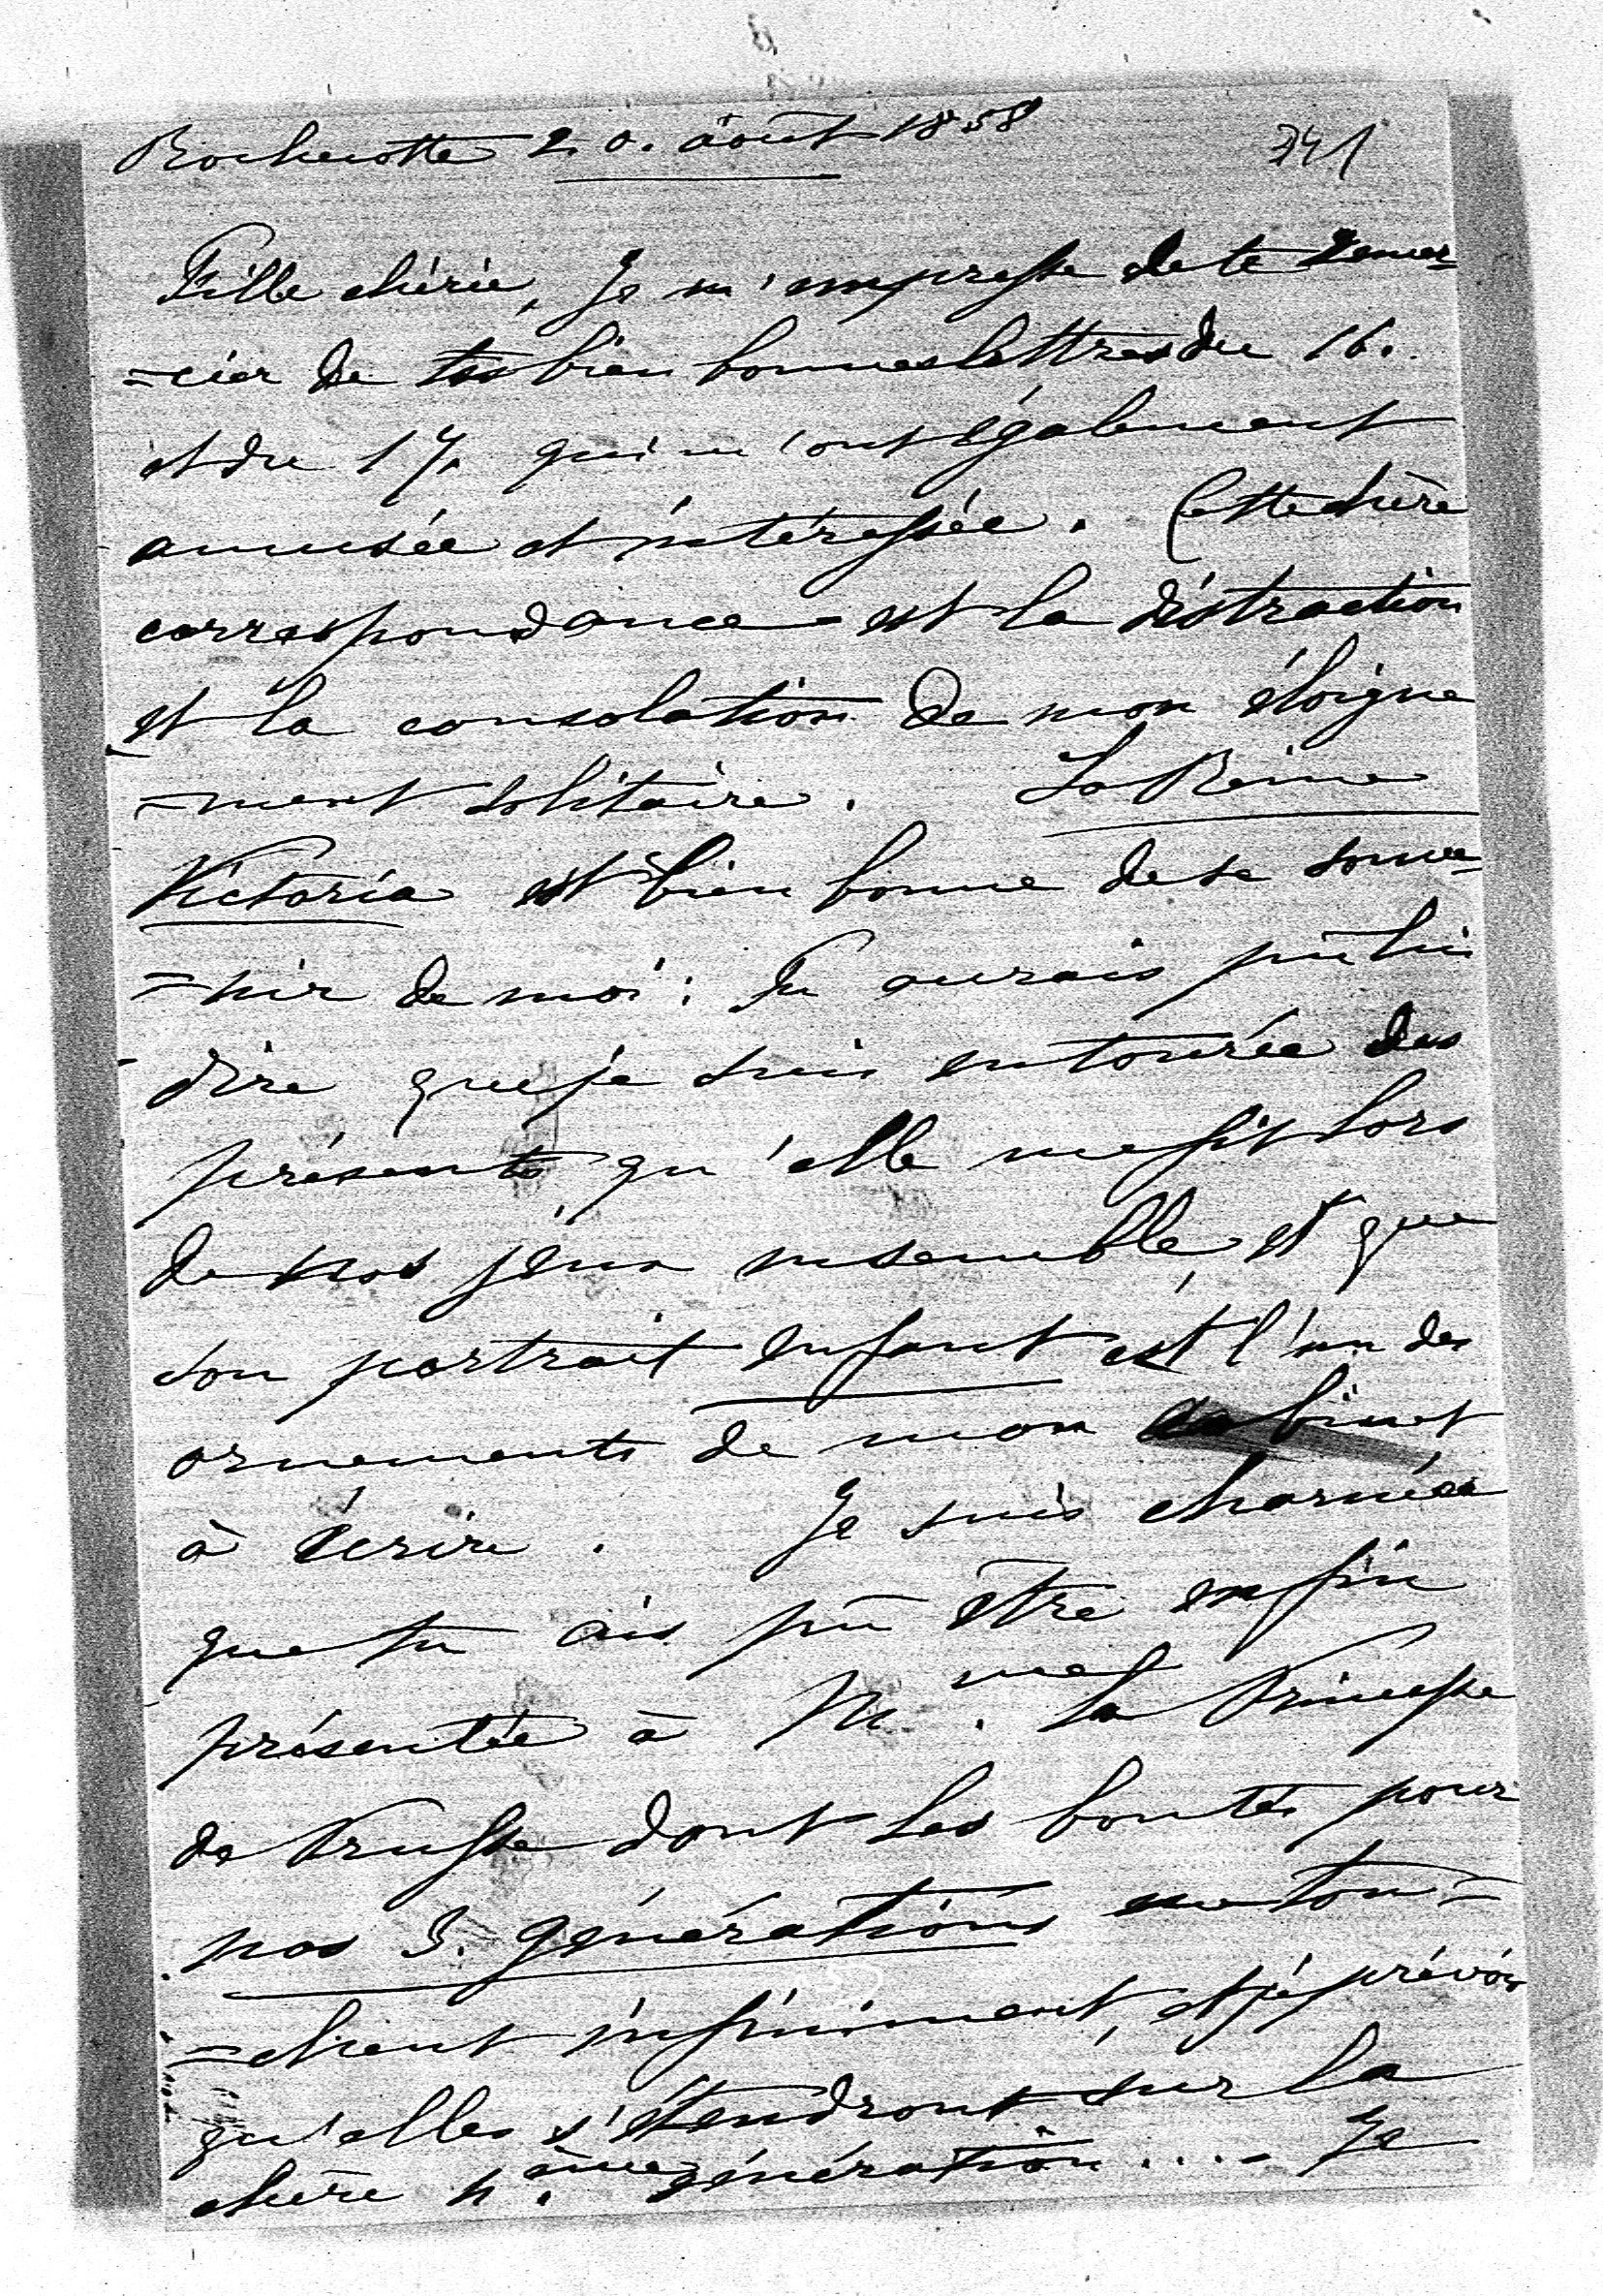 Rochecotte 20. août 1858 741
Fille chérie, Je m'empresse de te remer-
=cier de tes bien bonnes lettres du 16.
et du 17. qui m'ont également
amusée et intéressée. Cette chère
correspondance est la distraction
et la consolation de mon éloigne
=ment solitaire. La Reine
Victoria est bien bonne de se souve=
=nir de moi: Tu aurais pû lui
dire que je suis entourée des
présents qu'elle me fit lors
de nos jeux ensemble, et que
son portrait enfant est l'un des
ornements de mon cabinet
à écrire. Je suis charmée
que tu ais pû être enfin
présentée à Mme. la Princesse
de Prusse dont les bontés pour
nos 3. générations me tou=
=chent infiniment, et je prévois
qu'elles s'étendront sur la
chère 4.ème génération.... Je